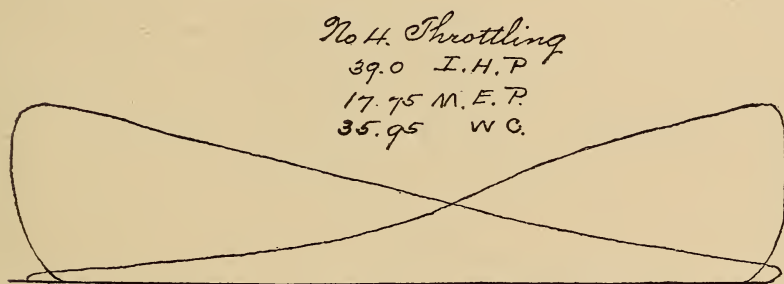 No 4. Throttling
39.0 I.H.P
17.75 M.E.P.
35.95 W C.